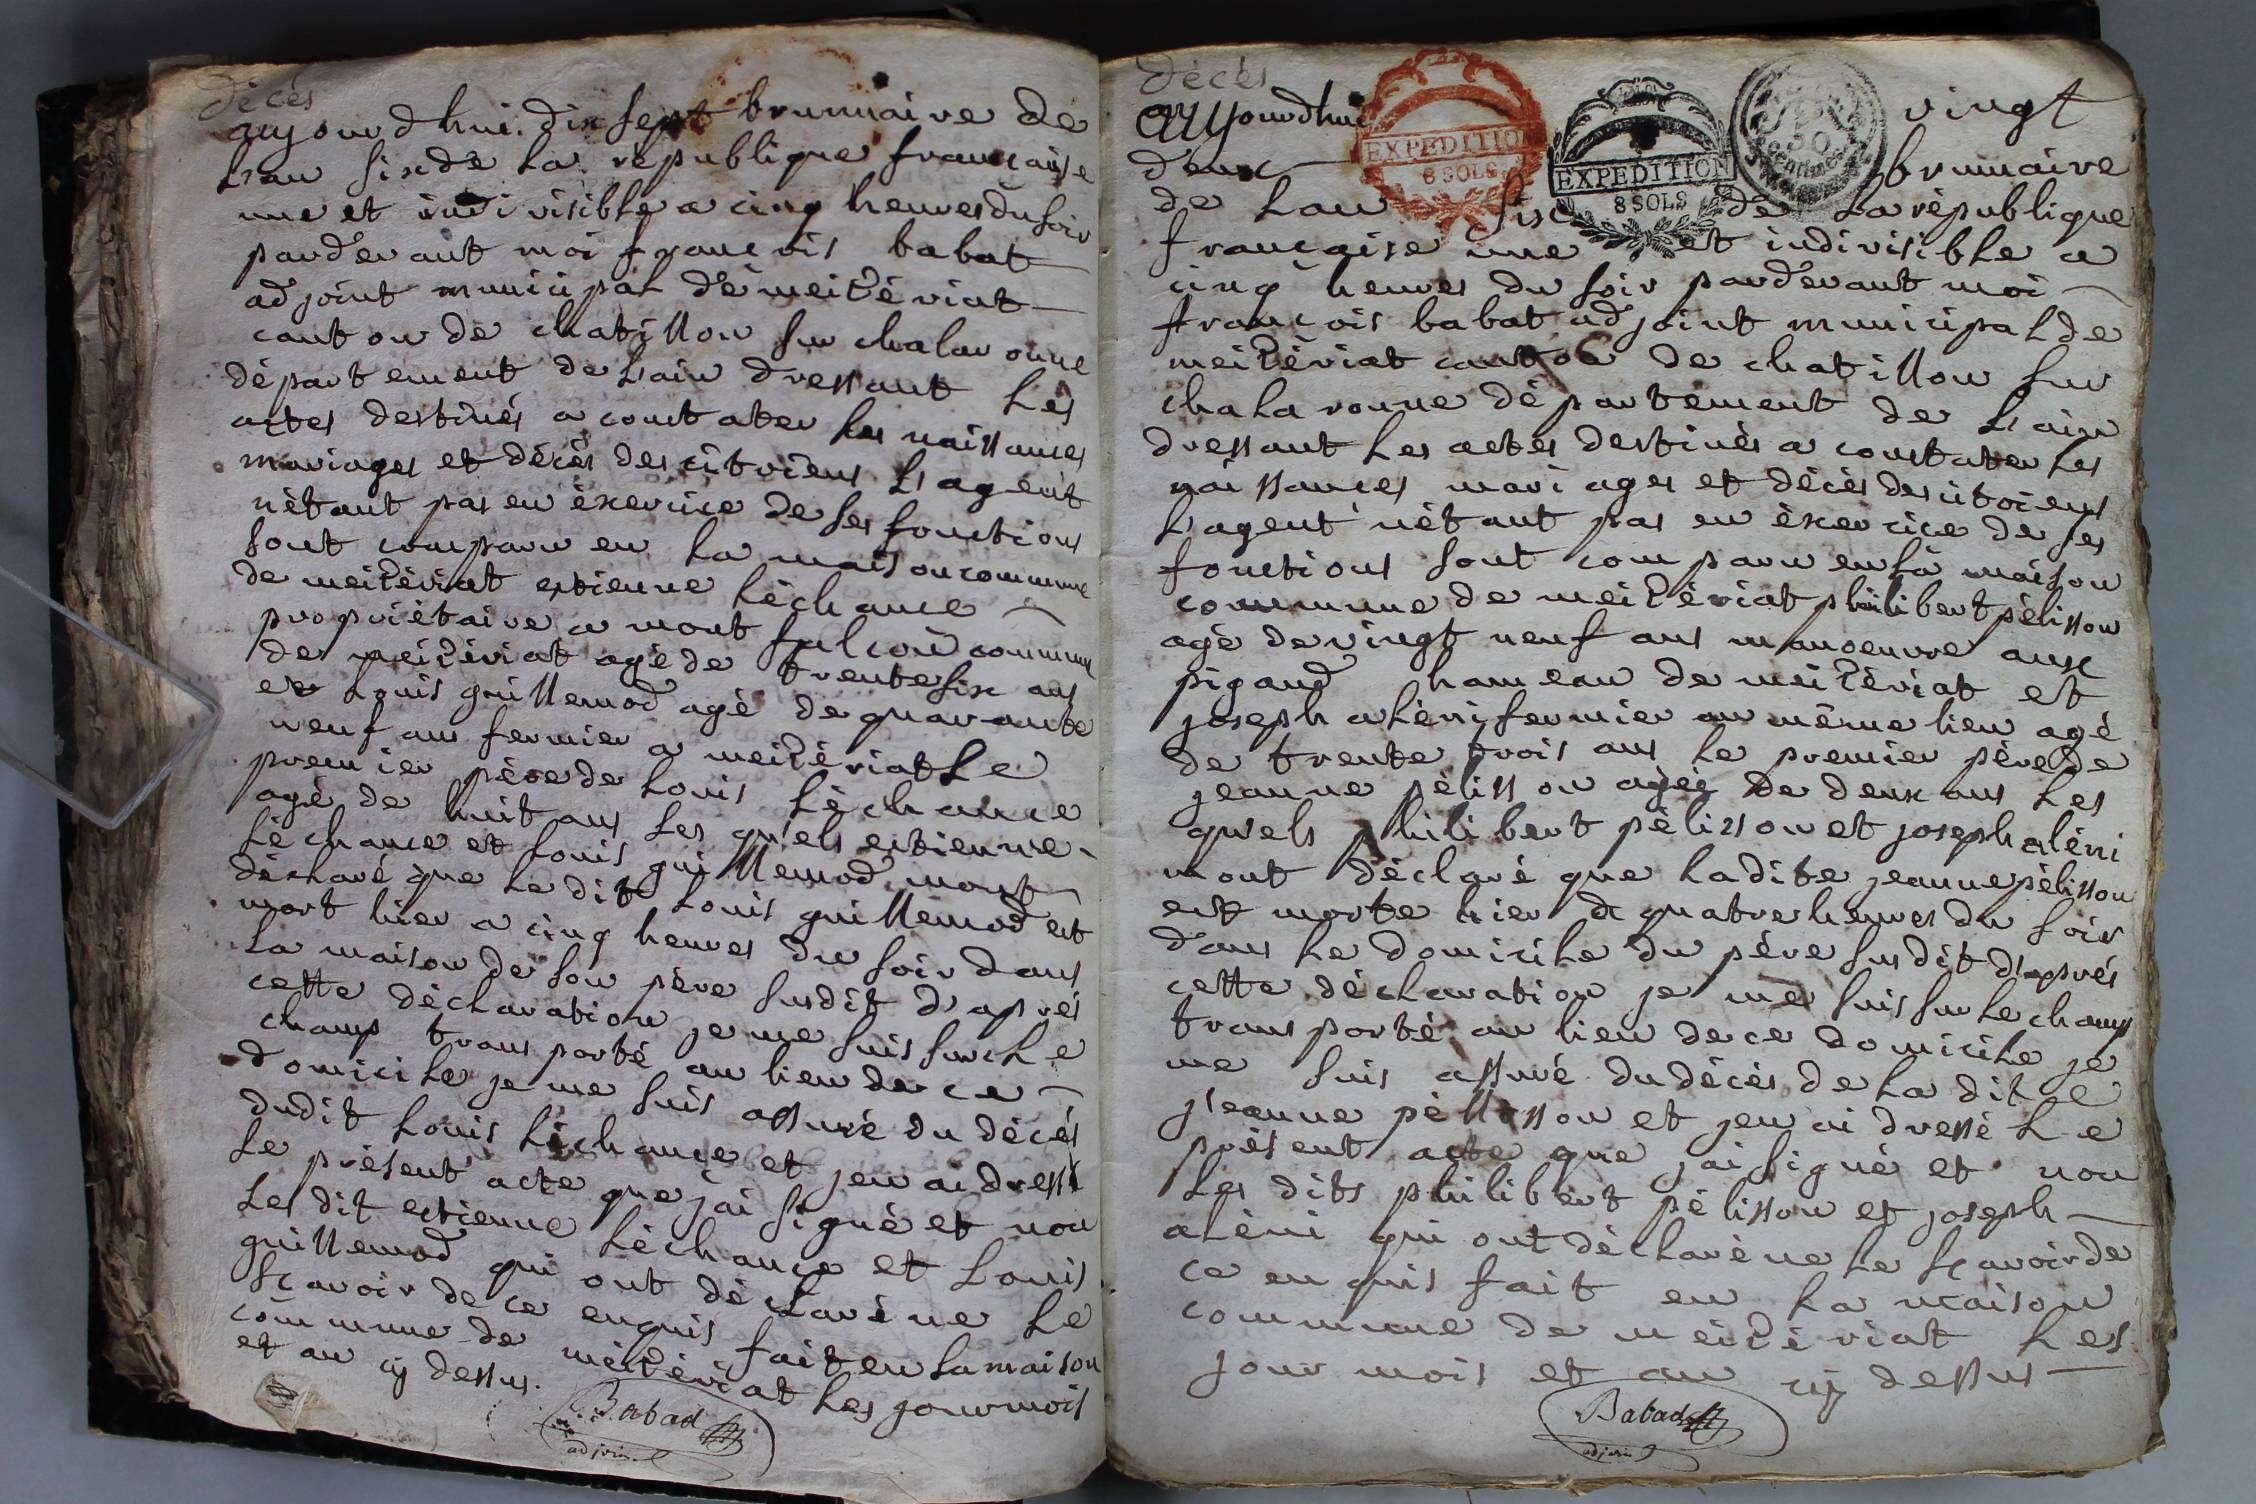 décès
aujourdhui dix sept brumaire de
L'an six de La république française
une et indivisible a cinq heures du soir
pardevant moi françois babat
adjoint municipal de meizériat
canton de chatillon sur chalaronne
département de L'ain dressant Les
actes destinés a constater les naissances
mariages et décés des citoiens L'agent
nètant pas en èxercice de ses fonctions
sont comparu en La maison commune
de meizériat estienne Lèchance
propriétaire a mont falcon commune
de meizériat agé de trente six ans
et Louis guillemod agé de quarante
neuf ans fermier a meizériat Le
premier père de Louis Lèchance
agé de huit ans Les qu'els estienne
Lèchance et Louis guillemod mont
déclaré que Le dit Louis guillemod est
mort hier a cinq heures du soir dans
La maison de son père susdit d'aprés
cette déclaration je me suis sur Le
champ transporté au lieu de ce
domicile je me suis assuré du décés
dudit Louis Lèchance et jen ai dressé
Le présent acte que j'ai signé et non
Les dit estienne Lèchance et Louis
guillemod qui ont déclaré ne Le
sçavoir de ce enquis fait en La maison
commune de meizériat Les jour mois
et an cy dessus.
Babad
adjoin
décés
aujourdhui vingt
EXPEDITION
8 SOLS
EXPEDITION
8 SOLS
50
centimes
deux brumaire
de Lan six de La république
française une et indivisible a
cinq heures du soir pardevant moi
françois babat adjoint municipal de
meizériat canton de chatillon sur
chalaronne département de L'ain
dressant Les actes destinés a constater Les
naissances mariages et décés des citoiens
L'agent nètant pas en èxercice de ses
fonctions sont comparu en La maison
commune de meizériat philibert pélisson
agé de vingt neuf ans manoeuvre aux
pigaud hameau de meizériat et
joseph aléni fermier au même lieu agé
de trente trois ans Le premier père de
jeanne pélisson agée de deux ans Les
qu'els philibert pélisson et joseph aléni
mont déclaré que Ladite jeanne pélisson
est morte hier a quatre heures du soir
dans Le domicile du père susdit d'aprés
cette déclaration je me suis sur Le champ
transporté au lieu de ce domicile je
me suis assuré du décés de La dite
jeanne pélisson et jen ai dressé Le
présent acte que j'ai signé et non
Les dits philibert pélisson et joseph
aléni qui ont déclaré ne Le sçavoir de
ce enquis fait en La maison
commune de meizériat Les
jour mois et an cy dessus
Babad
adjoin